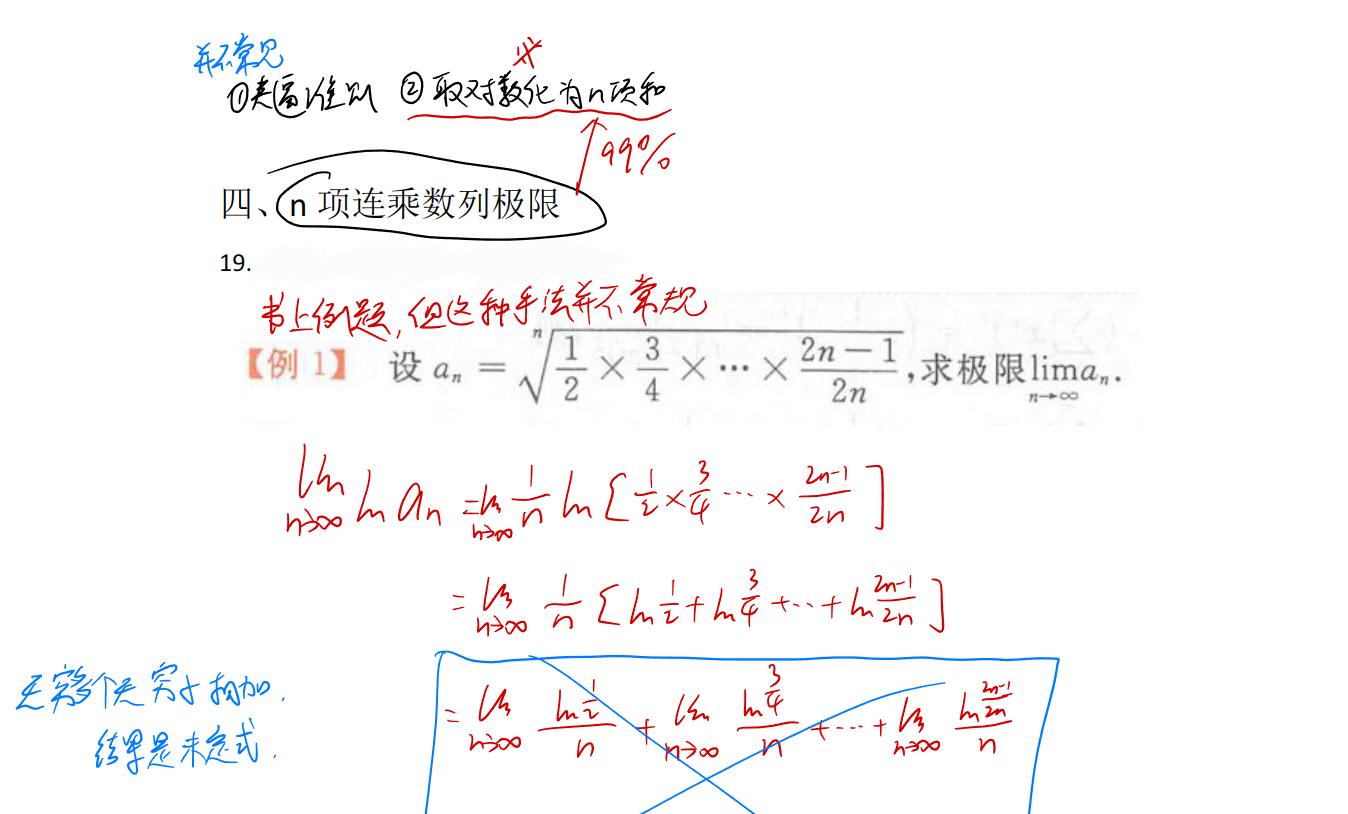 并不常见
①夹逼准则 ②取对数化为n项和
99%
四、n 项连乘数列极限
19.
书上例题,但这种手法并不常规
【例 1】 设 aₙ = ⁿ√(1/2 × 3/4 × ⋯ × (2n−1)/2n) ,求极限 lim_{n→∞} aₙ.
lim_{n→∞} ln aₙ = lim_{n→∞} 1/n ln [1/2 × 3/4 ⋯ × (2n-1)/2n]
= lim_{n→∞} 1/n [ln 1/2 + ln 3/4 + ⋯ + ln (2n-1)/2n]
= lim_{n→∞} (ln 1/2)/n + lim_{n→∞} (ln 3/4)/n + ⋯ + lim_{n→∞} (ln (2n-1)/2n)/n
无穷多个无穷小相加.
结果是未定式.